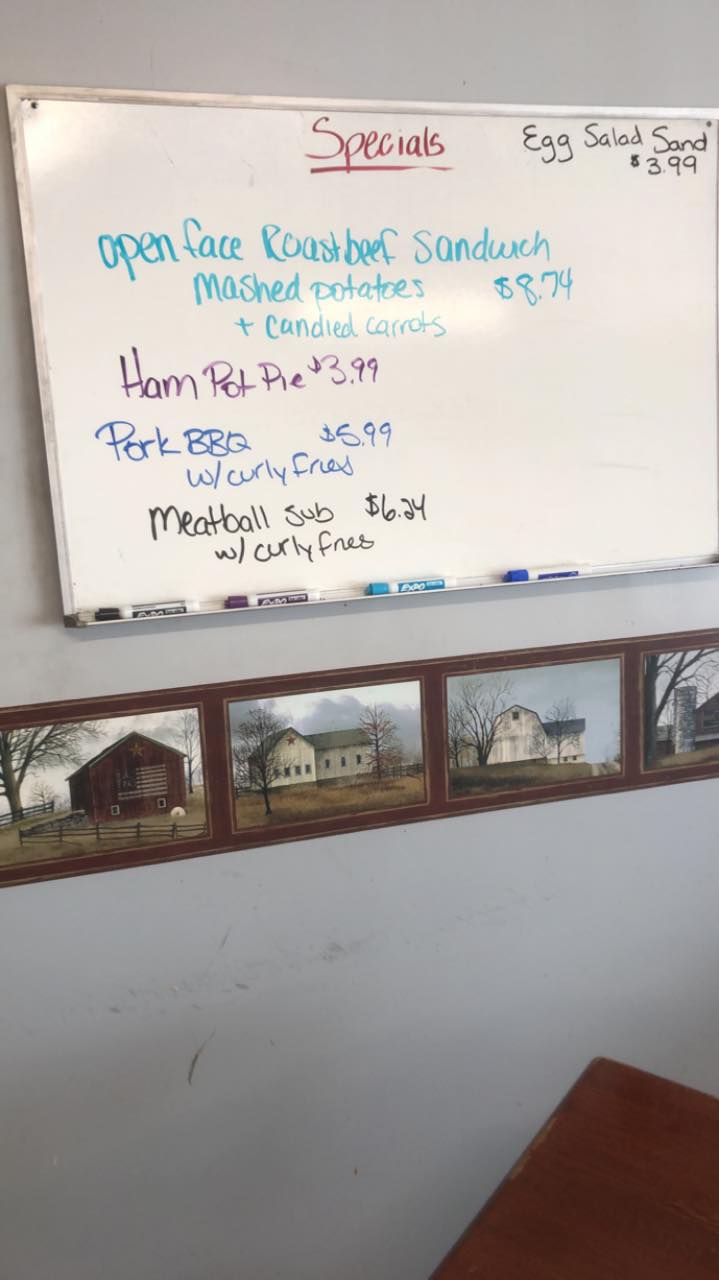 Specials
Egg Salad Sand
$3.99
open face Roastbeef Sandwich
Mashed potatoes $8.74
+ Candied carrots
Ham Pot Pie $3.99
Pork BBQ $5.99
w/curly fries
Meatball Sub $6.24
w/ curly fries
EXPO
EXPO
EXPO